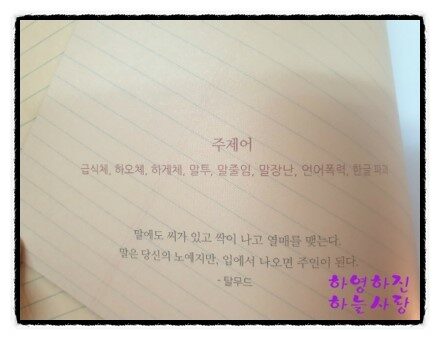 주제어
급식체, 하오체, 하게체, 말투, 말줄임, 말장난, 언어폭력, 한글 파괴
말에도 씨가 있고 싹이 나고 열매를 맺는다.
말은 당신의 노예지만, 입에서 나오면 주인이 된다.
- 탈무드
하영하진
하늘사탕